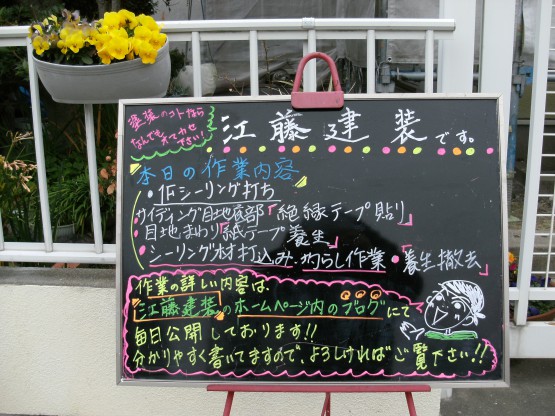 塗装のコトなら
なんでもおまかせ
下さい!
江藤建装です。
本日の作業内容
・1Fシーリング打ち
サイディング目地底部「絶縁テープ貼り」
目地まわり「紙テープ養生」
・シーリング材打込み・均らし作業・養生撤去」
作業の詳しい内容は、
江藤建装のホームページ内のブログにて
毎日公開しております!!
分かりやすく書いてますので、よろしければご覧下さい!!